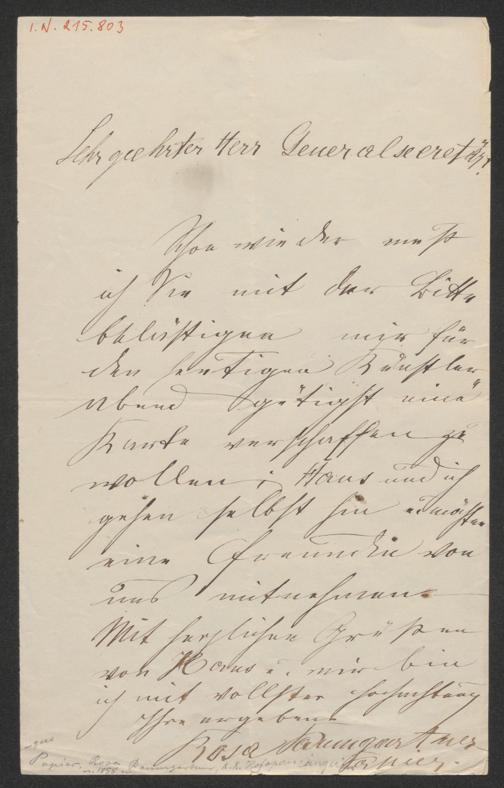 I.N. 215.803
Sehr geehrter Herr Generalsecretär!
Schon wieder muß
ich Sie mit der Bitte
belästigen mir für
den heutigen Künstler
abend gütigst eine
Karte verschaffen zu
wollen; Hans und ich
gehen selbst hin u. möchten
eine Freundin von
uns mitnehmen.
Mit herzlichen Grüßen
von Hans u. mir bin
ich mit vollster Hochachtung
Ihre ergebene
Rosa Baumgartner
Papier.
Papier, Rosa
Baumgartner, k.k. Hofopernsängerin